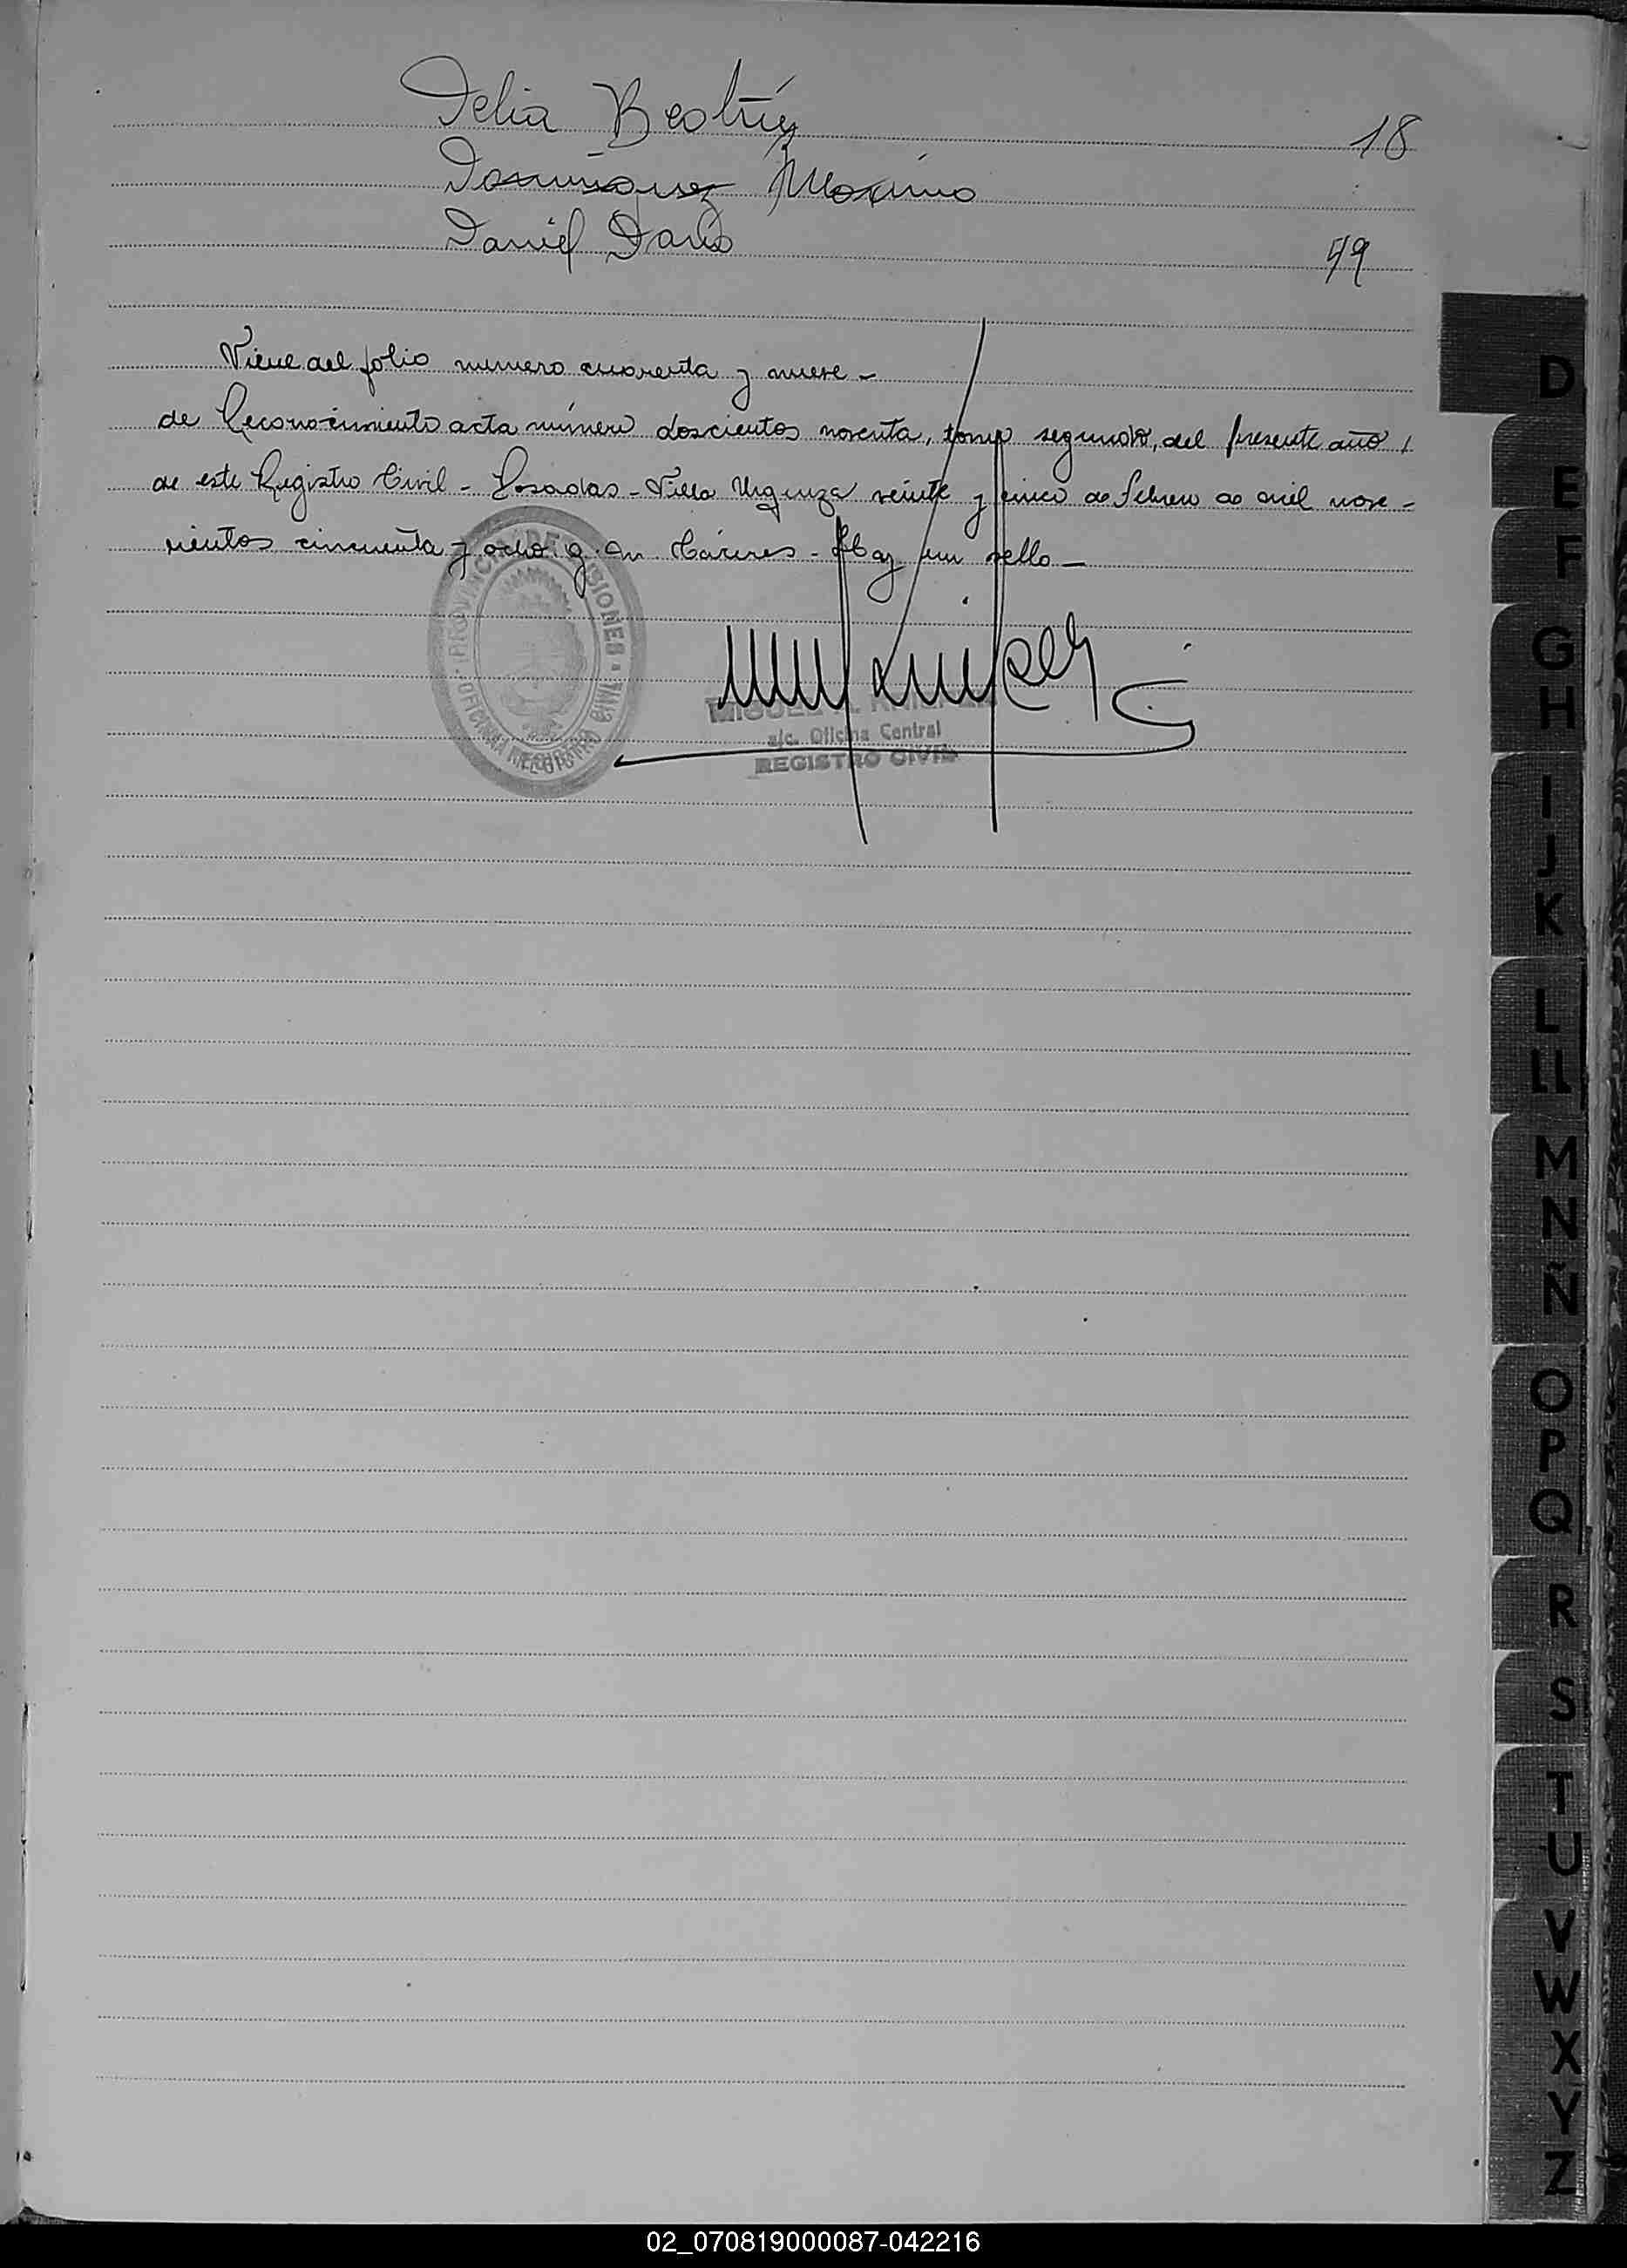 Delia Beatríz 18
Domínguez Máximo
Daniel Darío 49
Viene del folio numero cuarenta y nueve -
de Reconocimiento acta número doscientos noventa, tomo segundo, del presente año,
de este Registro Civil - Posadas - Villa Urquiza veinte y cinco de febrero de mil nove-
cientos cincuenta y ocho. Cáceres - Hay un sello -
PROVINCIA DE MISIONES
OFICINA
a/c. Oficina Central
REGISTRO CIVIL
D
E
F
G
H
I
J
K
L
LL
M
N
Ñ
O
P
Q
R
S
T
U
V
W
X
Y
Z
02_070819000087-042216